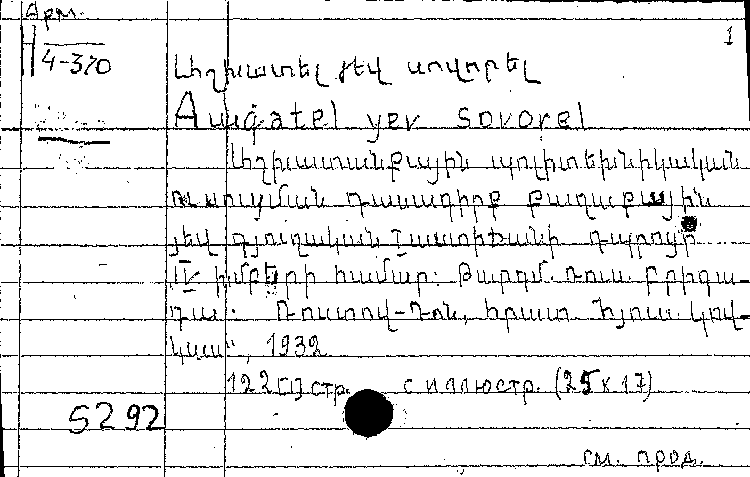 Арм.
1
4-370
Աշխատել յեվ սովորել
Aшqatel yev sovorel
Աշխատանքային պոլիտեխնիկական
ուսուցման դասագիրք քաղաքային
յեվ գյուղական դպրոցի
IV խմբերի համար: Թարգմ. Ռուս. բրիգա-
դաս: Ռոստով-Դոն, հրատ. Հյուս. կով-
կաս", 1932
122 [1] стр. с иллюстр. (25 x 17)
5292
см. прод.